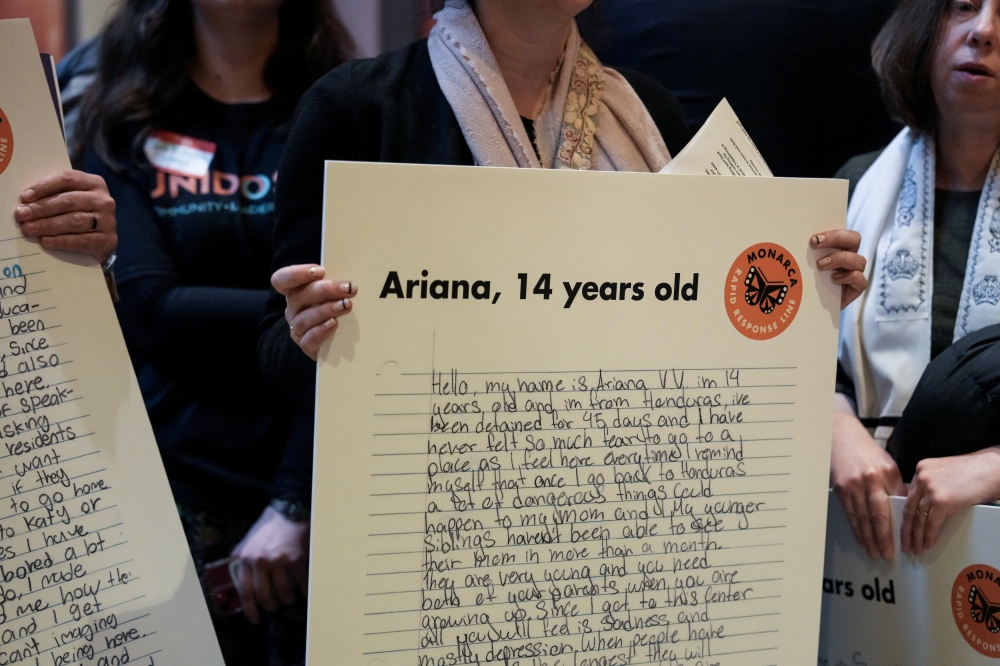 on
and
duca-
been
Since
d also
here.
of speak-
asking
residents
want
if they
to go home
to Katy or
es I have
bored a lot
do, I made
me how the
and I get
cant imaging
being here.
and
UNIDOS
MMUNITY • LEADER
Ariana, 14 years old
MONARCA
RAPID RESPONSE LINE
Hello, my name is Ariana V.V. im 14
years old and im from Honduras, ive
been detained for 45 days and I have
never felt so much fear to go to a
place as I feel here everytime I remind
myself that once I go back to Honduras
a lot of dangerous things could
happen to my mom and I My younger
siblings havent been able to see
their mom in more than a month.
They are very young and you need
both of your parents when you are
growing up. Since I got to this Center
all you will feel is sadness and
mostly depression, when people have
the longest they will
LINE
ars old
MONA
RAPID RES